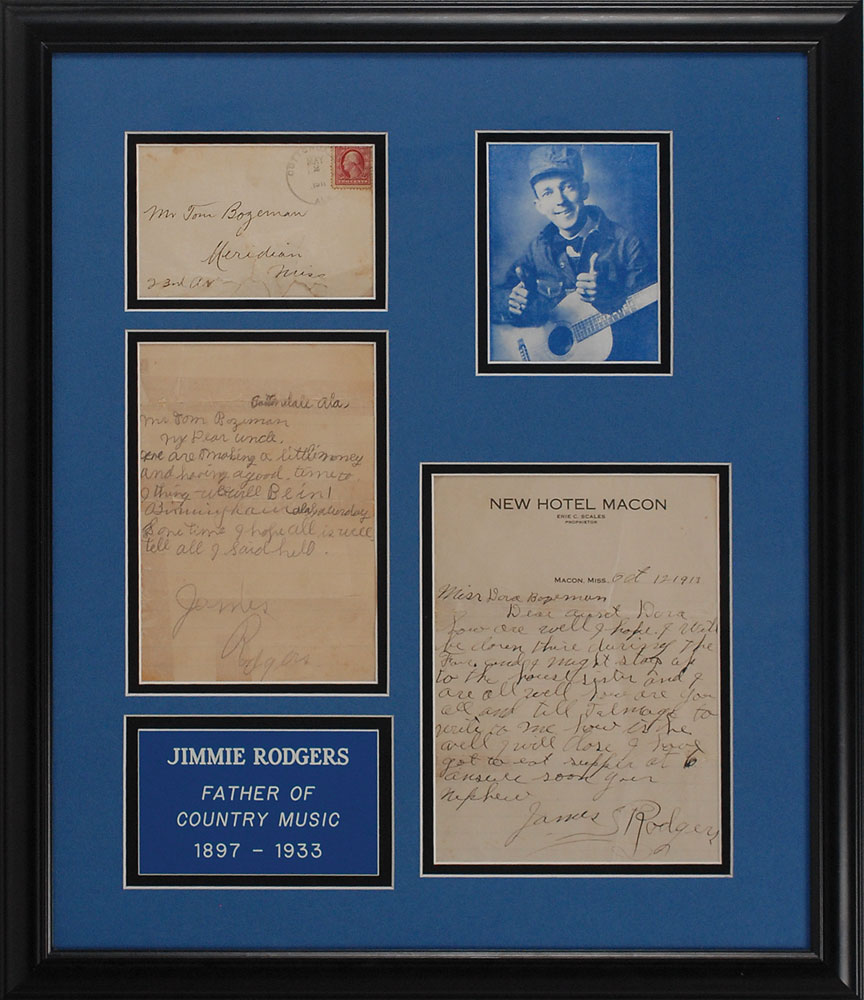 Mr Tom Bozeman
Meridian
Miss
23rd Av
Mr Tom Bozeman
My Dear uncle.
we are making a little money
and having a good. time to
I thing we will Be in
Birmingham ala, saturday
Some time I hope all is well
tell all I said hell.
James
Rodgers
JIMMIE RODGERS
FATHER OF
COUNTRY MUSIC
1897 - 1933
NEW HOTEL MACON
ERIE C. SCALES
PROPRIETOR
MACON, MISS. Oct 12 191
Miss Dora Bozeman
Dear aunt Dora
how are well I hope. I Will
be down there during The
Fair and I might stop
to the house sister and I
are all well how are you
all and tell Talmage to
write to me how is he
well I will close I have
got to eat supper at 6
answer soon your
Nephew
James Rodgers